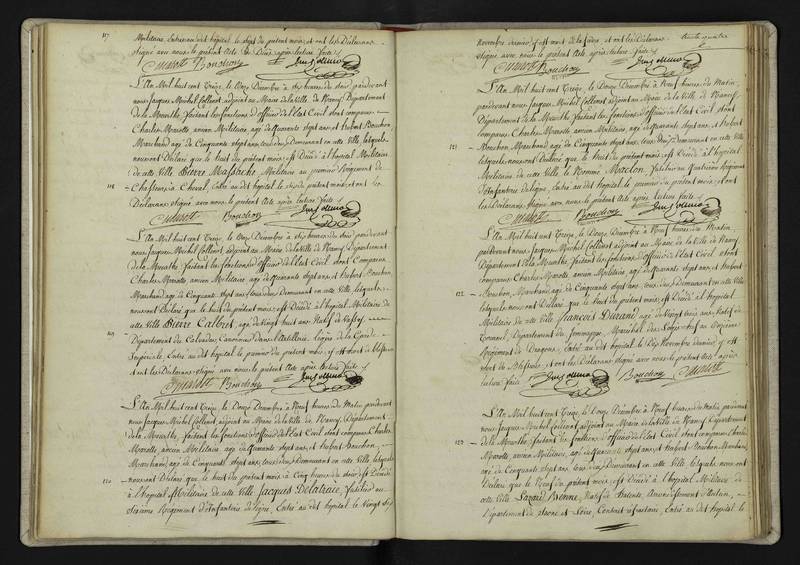 117
Militaire, Entré au dit hôpital le sept du présent mois, et ont les Déclarans
signé avec nous le présent Acte de Décès après lecture faite.
Bouchon
L'An Mil huit cent Treize, le Onze Décembre à six heures du soir, pardevant
nous Jacques Michel Collenot adjoint au Maire de la Ville de Nancy, Département
de la Meurthe, faisant les fonctions d'officier de l'Etat Civil, sont comparus
Charles Marotte ancien Militaire, agé de quarante sept ans, et Hubert Bouchon
Marchand agé de Cinquante sept ans, tous deux Demeurant en cette Ville, lesquels
nous ont Déclaré que le huit du présent mois est Décédé à l'hôpital Militaire
de cette Ville Pierre Massache, Militaire au premier Régiment de
118
Chasseurs à Cheval, Entré au dit hôpital le six du présent mois, et ont les
Déclarans signé avec nous, le présent Acte après lecture faite.
Bouchon
L'An Mil huit cent Treize, le Onze Décembre à six heures du soir, pardevant
nous Jacques Michel Collenot adjoint au Maire de la Ville de Nancy, Département
de la Meurthe, faisant les fonctions d'officier de l'Etat Civil sont Comparus
Charles Marotte ancien Militaire agé de quarante sept ans, et Hubert Bouchon,
Marchand, agé de Cinquante sept ans, tous deux Demeurant en cette Ville, lesquels
nous ont Déclaré que le huit du présent mois, est Décédé à l'hôpital Militaire de
cette Ville Pierre Calbret, agé de Vingt huit ans Natif de
119
Département du Calvados, Canonier dans l'Artillerie légère de la Garde
Impériale, Entré au dit hôpital le premier du présent mois, y est mort de blessure
et ont les Déclarans signé avec nous le présent Acte après lecture faite
Bouchon
L'An Mil huit cent Treize, le Douze Décembre à Neuf heures du Matin pardevant
nous Jacques Michel Collenot adjoint au Maire de la Ville de Nancy, Département
de la Meurthe, faisant les fonctions d'officier de l'Etat Civil sont comparus Charles
Marotte ancien Militaire, agé de quarante sept ans et Hubert Bouchon,
Marchand, agé de Cinquante sept ans, tous deux Demeurant en cette Ville, lesquels
120
nous ont Déclaré que le huit du présent mois à Cinq heures du soir est Décédé
à l'hôpital Militaire de cette Ville Jacques Delatraie, fusilier au
Sixième Régiment d'Infanterie de ligne, Entré au dit hôpital le Vingt Six
Novembre dernier, y est mort de la fièvre et ont les Déclarans
trente quatre
signé avec nous le présent Acte après lecture faite
Bouchon
L'An Mil huit cent Treize, le Douze Décembre à Neuf heures du Matin,
pardevant nous Jacques Michel Collenot adjoint au Maire de la Ville de Nancy,
Département de la Meurthe, faisant les fonctions d'officier de l'Etat Civil sont
comparus Charles Marotte ancien Militaire, agé de quarante sept ans et Hubert
121
Bouchon Marchand agé de Cinquante sept ans, tous deux Demeurant en cette Ville
lesquels nous ont Déclaré que le huit du présent mois, est Décédé à l'hôpital
Militaire de cette Ville le Nommé Maclon, fusilier au quatrième Régiment
d'Infanterie de ligne, Entré au dit hôpital le premier du présent mois, et ont
les Déclarans signé avec nous, le présent Acte après lecture faite
Bouchon
L'An Mil huit cent Treize, le Douze Décembre à Neuf heures du Matin,
pardevant nous Jacques Michel Collenot adjoint au Maire de la Ville de Nancy,
Département de la Meurthe, faisant les fonctions d'officier de l'Etat Civil sont
Comparus Charles Marotte ancien Militaire, agé de quarante sept ans, et Hubert
122
Bouchon, Marchand, agé de Cinquante sept ans, tous deux Demeurant en cette Ville
lesquels nous ont Déclaré que le huit du présent mois, est Décédé à l'hôpital
Militaire de cette Ville François Durand, agé de Vingt trois ans, Natif de
Département de Maréchal des Logis chef au Onzième
Régiment de Dragons, Entré au dit hôpital le Dix Novembre dernier, y est
mort de blessure, et ont les Déclarans signé avec nous le présent Acte après
lecture faite
Bouchon
L'An Mil huit cent Treize, le Douze Décembre à Neuf heures du Matin, pardevant
nous Jacques Michel Collenot adjoint au Maire de la Ville de Nancy, Département
123
de la Meurthe, faisant les fonctions d'officier de l'Etat Civil sont comparus Charles
Marotte ancien Militaire, agé de quarante sept ans, et Hubert Bouchon Marchand,
agé de Cinquante sept ans, tous deux Demeurant en cette Ville lesquels nous ont
Déclaré que le Neuf du présent mois est Décédé à l'hôpital Militaire de
cette Ville Lazare Benne, Natif de Arrondissement d'Autun,
Département de Saone et Loire, Conscrit réfractaire, Entré au dit hôpital le